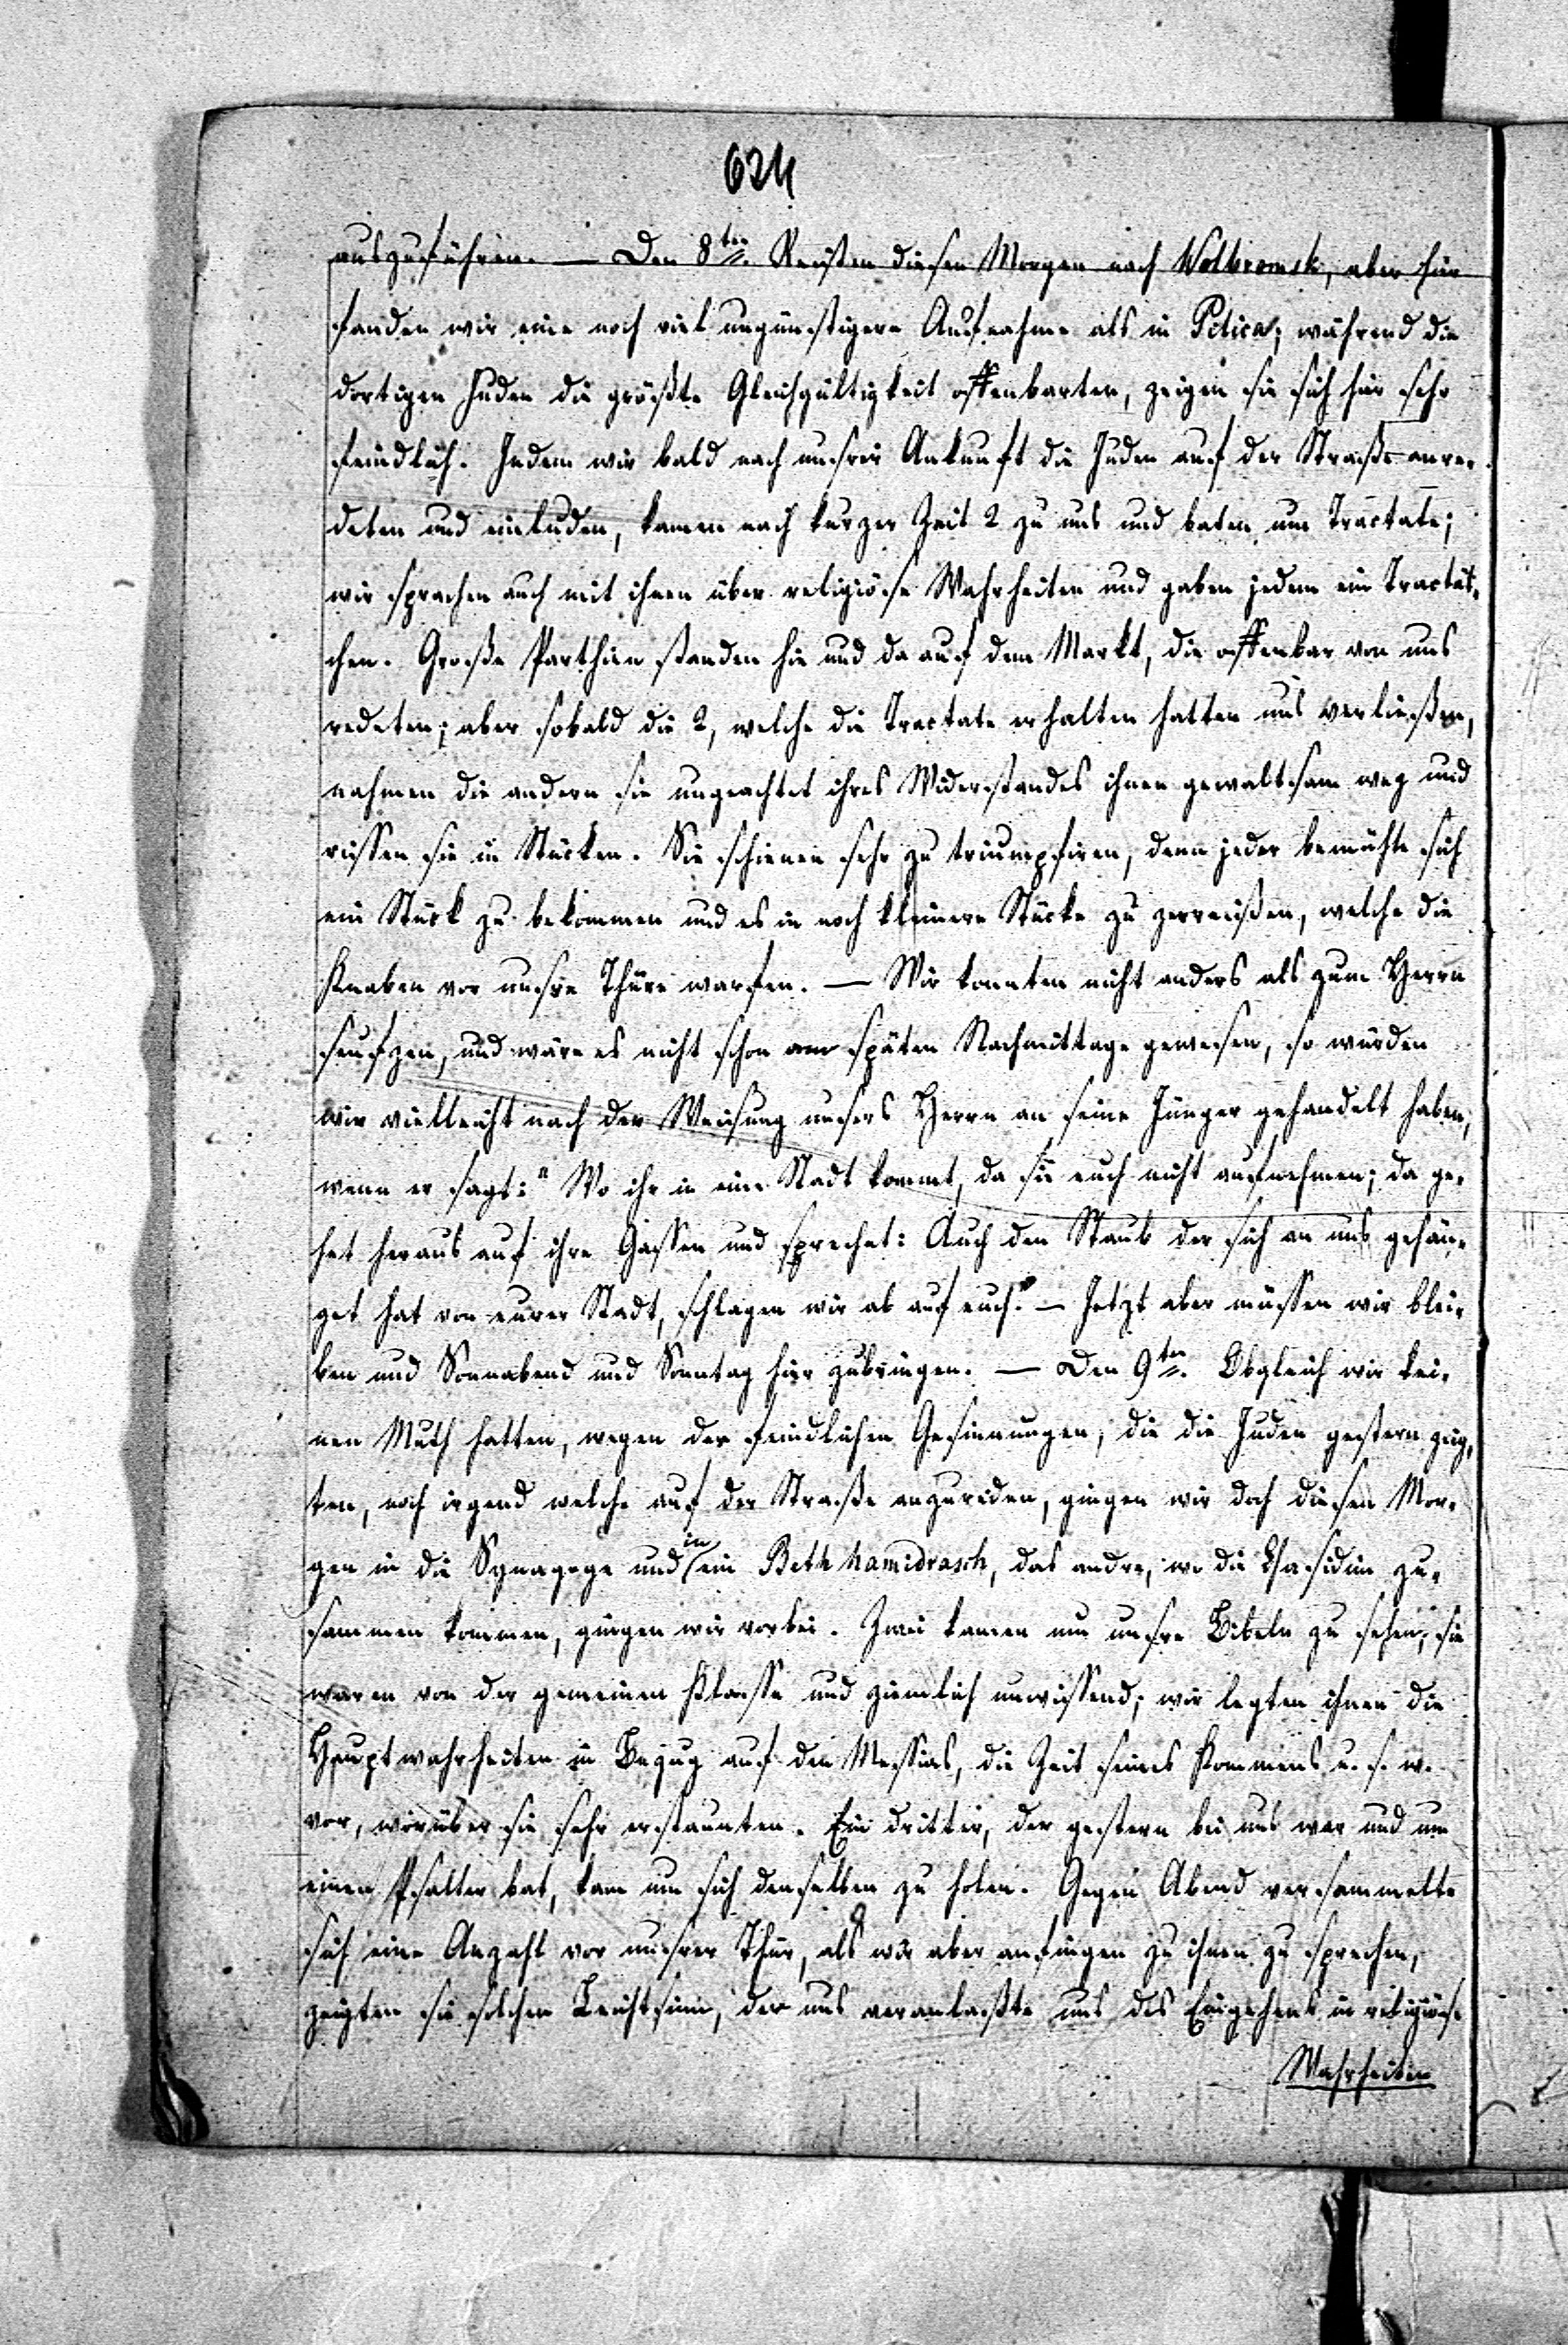 624
auszuführen. — Den 8ten. Reisten diesen Morgen nach Wolbromsk, aber hier
fanden wir eine noch viel ungünstigere Aufnahme als in Pilica; während die
dortigen Juden die größte Gleichgültigkeit offenbarten, zeigen sie sich hier sehr
feindlich. Indem wir bald nach unsrer Ankunft die Juden auf der Straße anre-
deten und einluden, kamen nach kurzer Zeit 2 zu uns und baten um Tractate;
wir sprachen auch mit ihnen über religiöse Wahrheiten und gaben jedem ein Tractät-
chen. Große Parthien standen hie und da auf dem Markt, die offenbar von uns
redeten; aber sobald die 2, welche die Tractate erhalten hatten uns verließen,
nahmen die andern sie ungeachtet ihres Widerstandes ihnen gewaltsam weg und
rissen sie in Stücken. Sie schienen sehr zu triumpfiren, denn jeder bemühte sich
ein Stück zu bekommen und es in noch kleinere Stücke zu zerreißen, welche die
Knaben vor unsre Thüre warfen. — Wir konnten nicht anders als zum Herrn
seufzen, und wäre es nicht schon am späten Nachmittage gewesen, so würden
wir vielleicht nach der Weisung unsers Herrn an seine Jünger gehandelt haben,
wenn er sagt: "Wo ihr in eine Stadt kommt, da sie euch nicht aufnehmen; da ge-
het heraus auf ihre Gassen und sprechet: Auch den Staub der sich an uns gehän-
get hat von eurer Stadt, schlagen wir ab auf euch." — Jetzt aber müssen wir blei-
ben und Sonnabend und Sonntag hier zubringen. — Den 9ten. Obgleich wir kei-
nen Muth hatten, wegen der feindlichen Gesinnungen, die die Juden gestern zeig-
ten, noch irgend welche auf der Straße anzureden, gingen wir doch diesen Mor-
gen in die Synagoge und in ein Beth hamidrasch, das andre, wo die Chasidim zu-
sammen kommen, gingen wir vorbei. Zwei kamen um unsre Bibeln zu sehen; sie
waren von der gemeinen Klasse und ziemlich unwissend; wir legten ihnen die
Hauptwahrheiten in Bezug auf den Messias, die Zeit seines Kommens u. s. w.
vor, worüber sie sehr erstaunten. Ein dritter, der gestern bei uns war und um
einen Psalter bat, kam um sich denselben zu holen. Gegen Abend versammelte
sich eine Anzahl vor unsrer Thür, als wir aber anfingen zu ihnen zu sprechen,
zeigten sie solchen Leichtsinn, der uns veranlaßte uns des Eingehens in religiöse
Wahrheiten